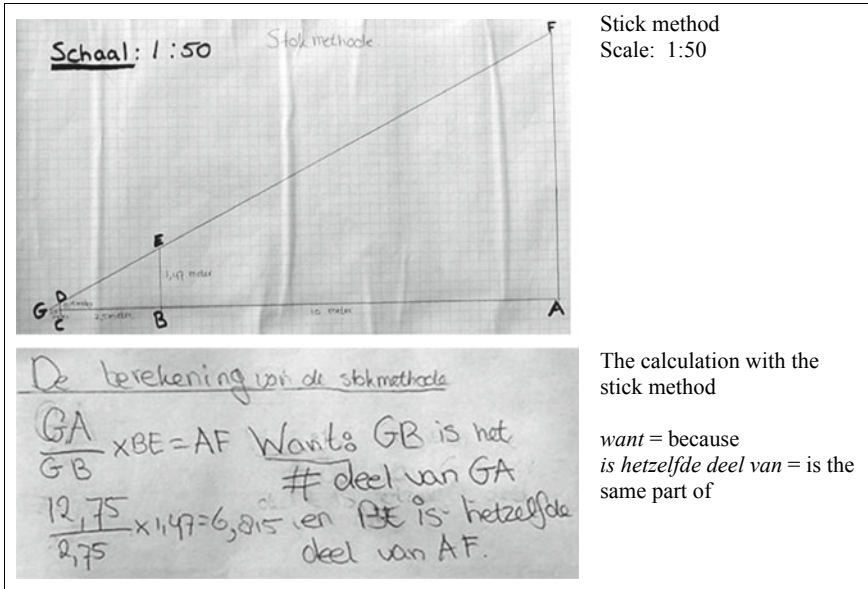 Schaal: 1:50
Stokmethode
F
E
1,47 meter
D
G
C
2,5 meter
B
10 meter
A
Stick method
Scale: 1:50
De berekening van de stokmethode
GA/GB ×BE = AF Want: GB is het
# deel van GA
12,75/2,75 ×1,47=6,815 en BE is hetzelfde
deel van AF.
The calculation with the
stick method
want = because
is hetzelfde deel van = is the
same part of